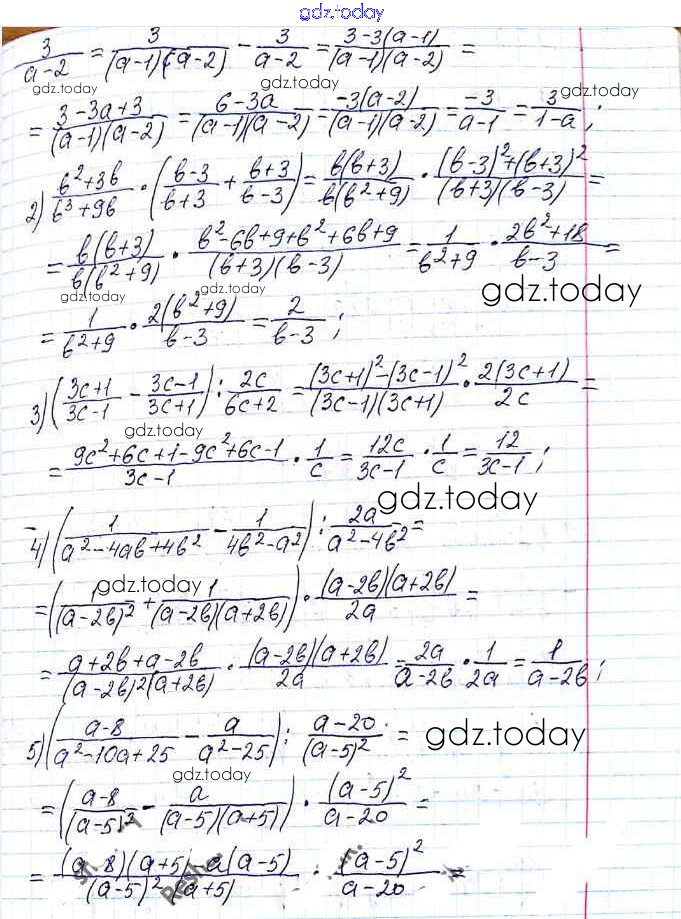 gdz.today
3/(a-2) = 3/((a-1)(a-2)) - 3/(a-2) = (3-3(a-1))/((a-1)(a-2)) =
gdz.today gdz.today
= (3-3a+3)/((a-1)(a-2)) = (6-3a)/((a-1)(a-2)) = (-3(a-2))/((a-1)(a-2)) = (-3)/(a-1) = 3/(1-a);
gdz.today gdz.today
2) (в²+3в)/(в³+9в) · ((в-3)/(в+3) + (в+3)/(в-3)) = (в(в+3))/(в(в²+9)) · ((в-3)²+(в+3)²)/((в+3)(в-3)) =
= (в(в+3))/(в(в²+9)) · (в²-6в+9+в²+6в+9)/((в+3)(в-3)) = 1/(в²+9) · (2в²+18)/(в-3) =
gdz.today gdz.today gdz.today
= 1/(в²+9) · (2(в²+9))/(в-3) = 2/(в-3);
3) ((3c+1)/(3c-1) - (3c-1)/(3c+1)) : 2c/(6c+2) = ((3c+1)²-(3c-1)²)/((3c-1)(3c+1)) · (2(3c+1))/2c =
gdz.today
= (9c²+6c+1-9c²+6c-1)/(3c-1) · 1/c = 12c/(3c-1) · 1/c = 12/(3c-1);
gdz.today
4) (1/(a²-4aв+4в²) - 1/(4в²-a²)) : 2a/(a²-4в²) =
gdz.today
= (1/(a-2в)² + 1/((a-2в)(a+2в))) · ((a-2в)(a+2в))/2a =
= (a+2в+a-2в)/((a-2в)²(a+2в)) · ((a-2в)(a+2в))/2a = 2a/(a-2в) · 1/2a = 1/(a-2в);
5) ((a-8)/(a²-10a+25) - a/(a²-25)) : (a-20)/(a-5)² =
gdz.today
gdz.today
= ((a-8)/(a-5)² - a/((a-5)(a+5))) · (a-5)²/(a-20) =
= ((a-8)(a+5)-a(a-5))/((a-5)²(a+5)) · (a-5)²/(a-20) =